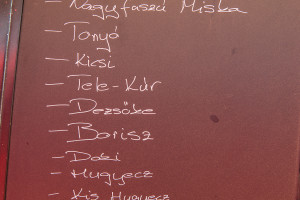 - Nagyfaszú Miska
- Tonyó
- Kicsi
- Tele-Kúr
- Dezsőke
- Borisz
- Doki
- Hugyecz
- Kis Hugyecz